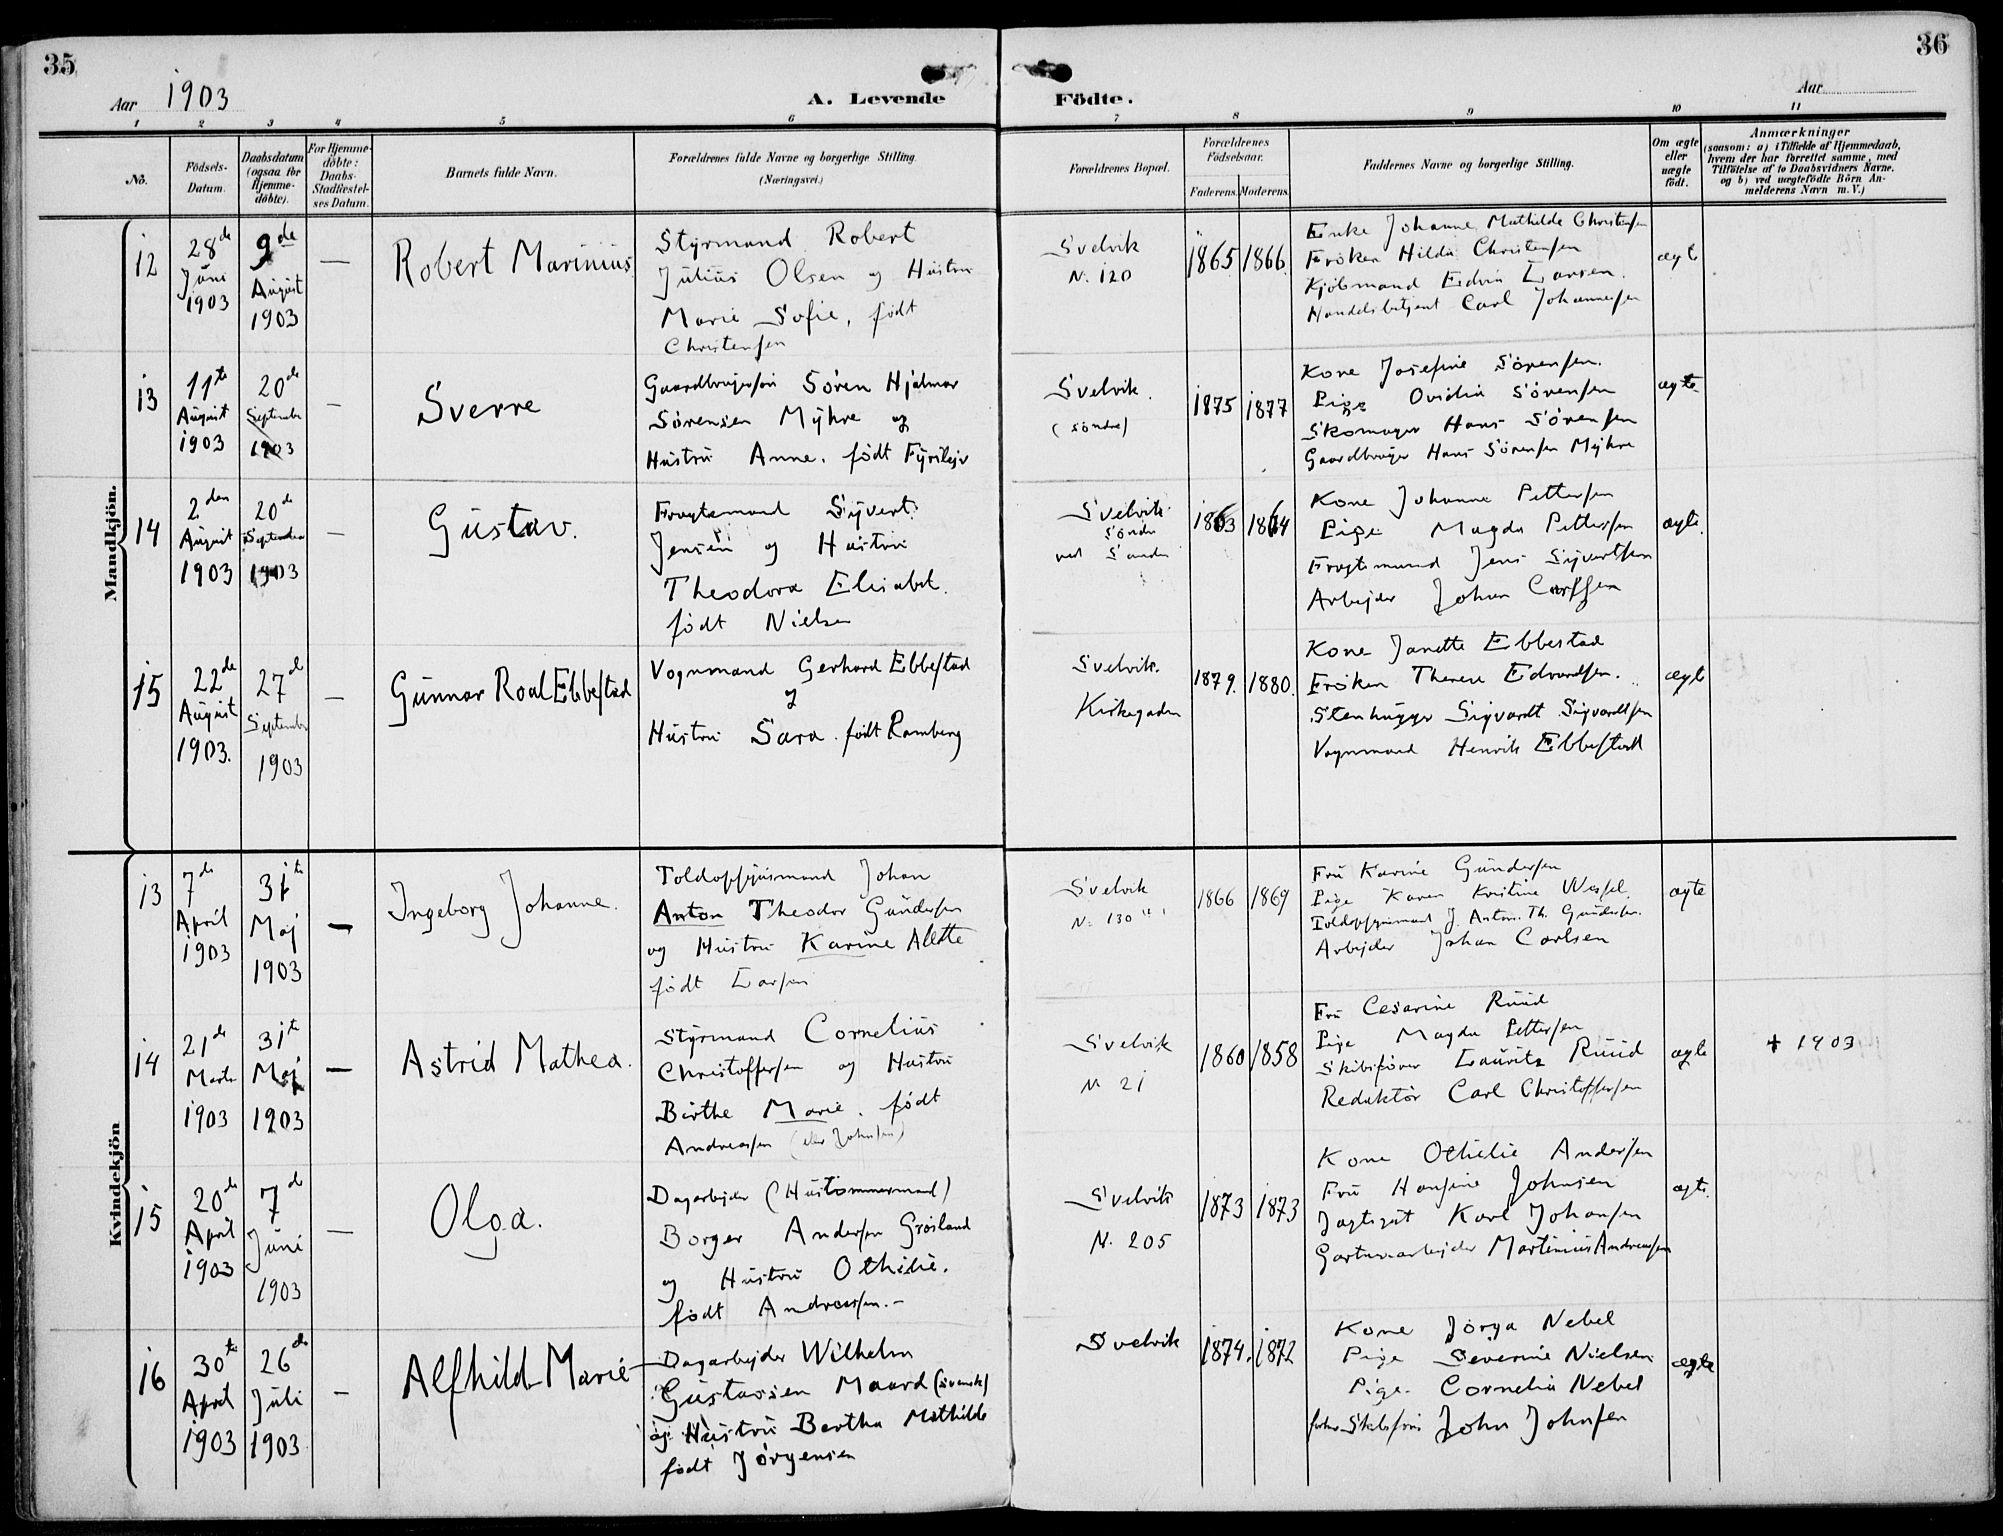 35
36
Aar 1903
A. Levende
Födte.
Aar
1 2 3 4 5 6 7 8 9 10 11
No.
Födsels-
Datum.
Daabsdatum
(ogsaa for
Hjemme-
döbte).
For Hjemme-
döbte:
Daabs-
Stadfæstel-
ses Datum.
Barnets fulde Navn.
Forældrenes fulde Navne og borgerlige Stilling.
(Næringsvei.)
Forældrenes Bopæl.
Forældrenes
Födselsaar.
Faderens. Moderens.
Faddernes Navne og borgerlige Stilling.
Om ægte
eller
uægte
födt.
Anmærkninger
(saasom: a) i Tilfælde af Hjemmedaab,
hvem der har forrettet samme, med
Tilföielse af to Daabsvidners Navne.
og b) ved uægtefödte Börn An-
melderens Navn m. V.)
Mandkjön.
12
28de
Juni
1903
9de
August
1903
—
Robert Marinius
Styrmand Robert
Julius Olsen og Hustru
Marie Sofie, født
Christensen
Svelvik
N. 120
1865 1866.
Enke Johanne Mathilde Christensen
Frøken Hilda Christensen
Kjøbmand Edvin Larsen.
Handelsbetjent Carl Johannesen
ægte
13
11te
August
1903
20de
September
1903
—
Sverre
Gaardbrugersøn Sören Hjalmar
Sörensen Myhre og
Hustru Anne. født
Svelvik.
(søndre)
1875 1877
Kone Josefine Sörensen.
Pige Ovidia Sörensen
Skomager Hans Sörensen
Gaardbruger Hans Sörensen Myhre
ægte
14
2den
August
1903
20de
September
1903
—
Gustav.
Fragtemand Syvert
Jensen og Hustru
Theodora Elisabet.
født Nielsen
Svelvik.
Søndre
ved Sanden
1863 1864
Kone Johanne Pettersen
Pige Magda Pettersen
Fragtemand Jens Sijvertsen
Arbejder Johan
ægte.
15
22de
August
1903.
27de
September
1903
—
Gunnar Roal Ebbestad
Vognmand Gerhard Ebbestad
og
Hustru Sara. født Ramberg
Svelvik.
Kirkegaden
1879. 1880.
Kone Janette Ebbestad
Frøken Therese Edvardsen.
Stenhugger Sigvardt Sigvardtsen
Vognmand Henrik Ebbestad
ægte
Kvindekjön
13
7de
April
1903
31te
Maj
1903
—
Ingeborg Johanne.
Toldopsynsmand Johan
Anton Theodor Gundersen
og Hustru Karine Alette
født Larsen
Svelvik
N. 130
1866 1869
Fru Karine Gundersen
Pige Karen Kristine Wessel.
Toldopsynsmand J. Anton. Th. Gundersen.
Arbejder Johan Carlsen
ægte
14
21de
Marts
1903
31te
Maj
1903
—
Astrid Mathea.
Styrmand Cornelius
Christoffersen og Hustru
Birthe Marie. født
Andreassen (eller Johnsen)
Svelvik
N. 21
1860 1858
Fru Cesarine Ruud
Pige Magda Pettersen
Skibsfører Lauritz Ruud
Redaktør Carl Christoffersen
ægte
+ 1903
15
20de
April
1903
7de
Juni
1903
—
Olga.
Dagarbejder (Hustømmermand)
Borger Andersen Grøsland
og Hustru Othilie.
født Andreassen. -
Svelvik
N. 205
1873 1873
Kone Othilie Andersen
Fru Hansine Johnsen
Jagtsgut Karl Johansen
Gartnerarbejder Martinius Andreassen
ægte.
16
30te
April
1903
26de
Juli
1903
—
Alfhild Marie
Dagarbejder Wilhelm
Gustassen Maard (svensk)
og Hustru Bertha Mathilde
født Jörgensen
Svelvik
1874. 1872
Kone Jörga Nebel
Pige Severine Nielsen
Pige. Cornelia Nebel
John Johnsen
ægte